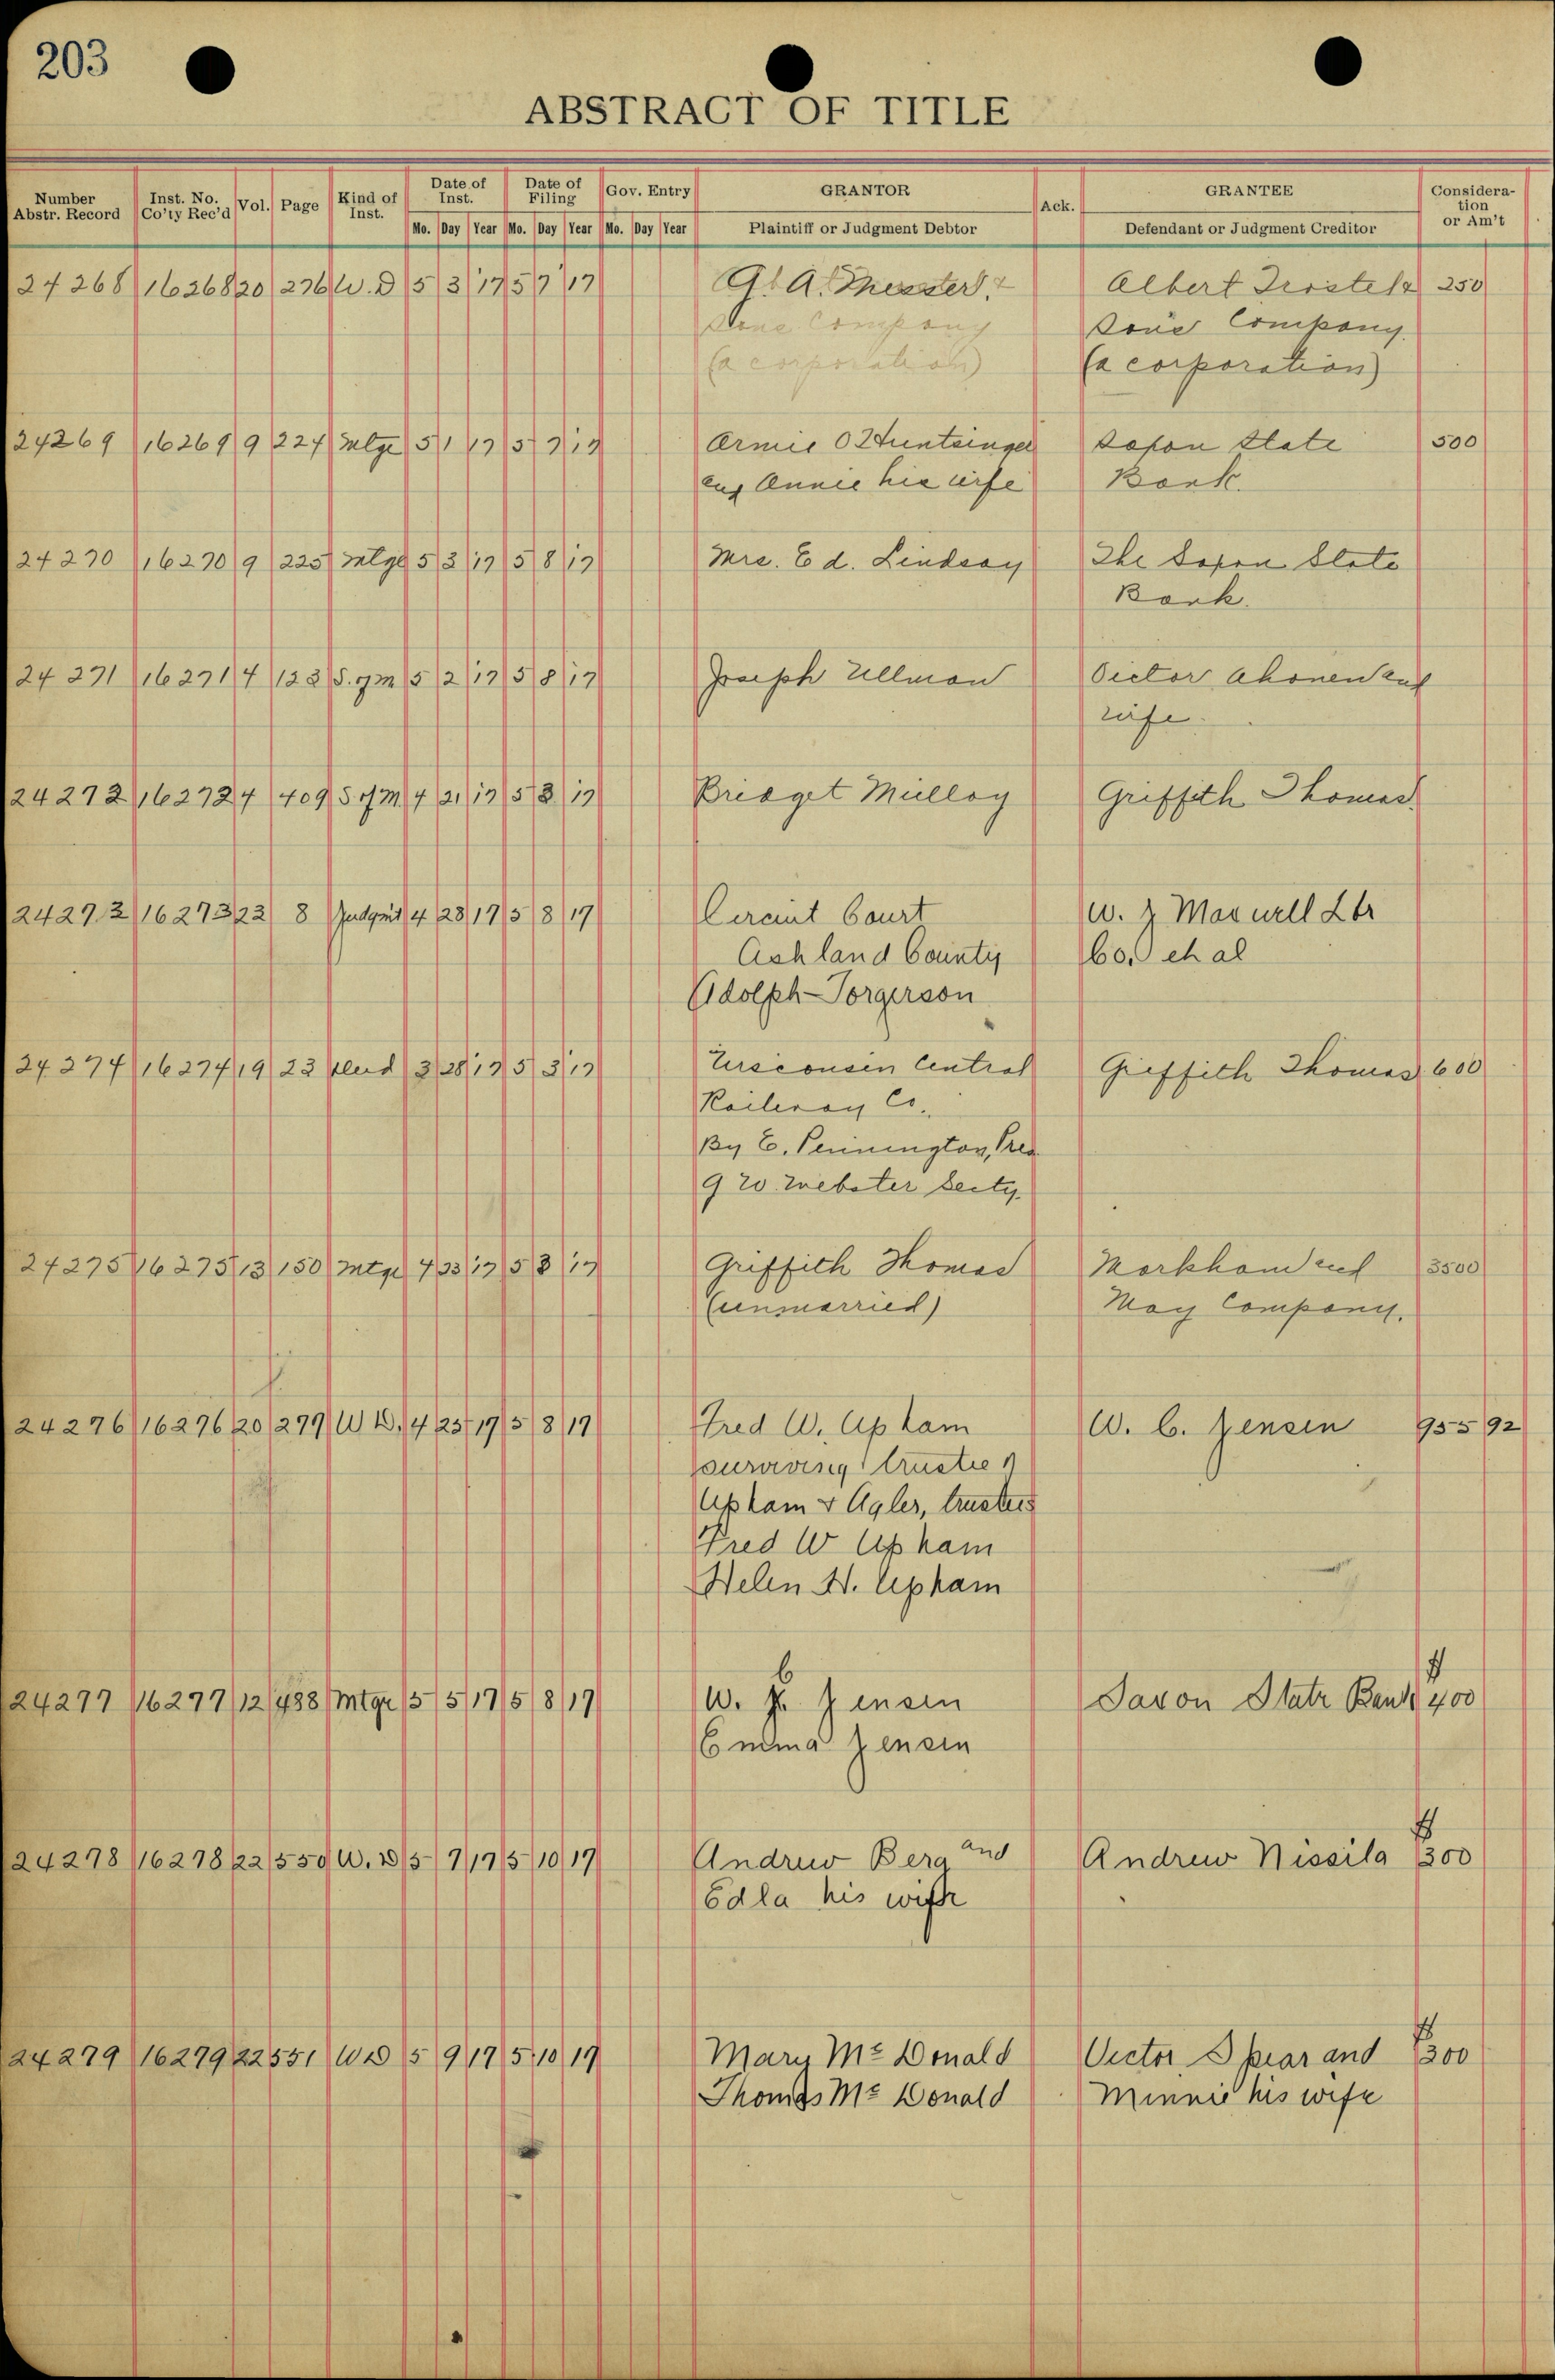 203
ABSTRACT OF TITLE
Number Abstr. Record Inst. No. Co'ty Rec'd Vol. Page Kind of Inst. Date of Inst. Date of Filing Gov. Entry GRANTOR Ack. GRANTEE Consideration or Am't
Mo. Day Year Mo. Day Year Mo. Day Year Plaintiff or Judgment Debtor Defendant or Judgment Creditor
24268 16268 20 276 W.D 5 3 17 5 7 17 A. Albert Trostel & 250
Sons Company Sons Company
(a corporation) (a corporation)
24269 16269 9 224 Mtge 5 1 17 5 7 17 Armie O Huntsinger Saxon State 500
and Annie his wife Bank.
24270 16270 9 225 Mtge 5 3 17 5 8 17 Mrs. Ed. Lindsay The Saxon State
Bank.
24271 16271 4 S. of M 5 2 17 5 8 17 Joseph Ullman Victor Ahonen and
wife.
24272 16272 4 409 S of M 4 21 17 5 8 17 Bridget Mulloy Griffith Thomas
24273 16273 22 8 Judgmt 4 28 17 5 8 17 Circuit Court W. J Maxwell Lbr
Ashland County Co. et al
Adolph Torgerson
24274 16274 19 23 Deed 3 28 17 5 8 17 Wisconsin Central Griffith Thomas 600
Railway Co.
By E. Pennington, Pres
G W. Webster Secty.
24275 16275 13 150 Mtge 4 23 17 5 8 17 Griffith Thomas Markham and 3500
(unmarried) May Company.
24276 16276 20 277 W D. 4 25 17 5 8 17 Fred W. Upham W. C. Jensen 955 92
surviving trustee
Upham & Agler, trustees
Fred W Upham
Helen H. Upham
24277 16277 12 488 Mtge 5 5 17 5 8 17 W. C Jensen Saxon State Bank $ 400
Emma Jensen
24278 16278 22 550 W. D 5 7 17 5 10 17 Andrew Berg and Andrew Nissila $ 300
Edla his wife
24279 16279 22 551 WD 5 9 17 5 10 17 Mary McDonald Victor Spear and $ 300
Thomas McDonald Minnie his wife